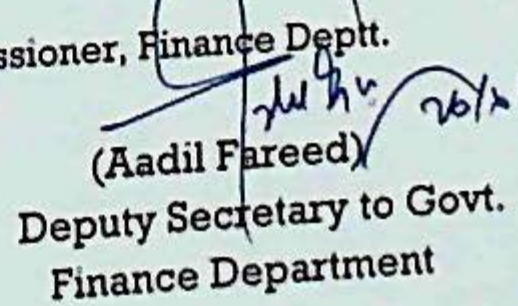 ssioner, Finance Deptt.
(Aadil Fareed)
Deputy Secretary to Govt.
Finance Department